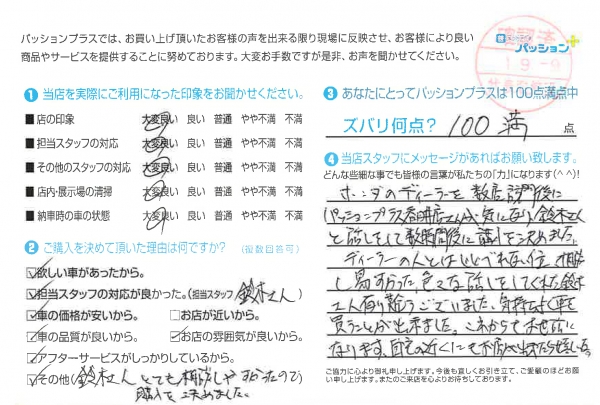 パッションプラスでは、お買い上げ頂いたお客様の声を出来る限り現場に反映させ、お客様により良い
商品やサービスを提供することに努めております。大変お手数ですが是非、お声を聞かせてください。
パッション
19.-9
1 当店を実際にご利用になった印象をお聞かせください。
■店の印象 大変良い 良い 普通 やや不満 不満
■担当スタッフの対応 大変良い 良い 普通 やや不満 不満
■その他のスタッフの対応 大変良い 良い 普通 やや不満 不満
■店内・展示場の清掃 大変良い 良い 普通 やや不満 不満
■納車時の車の状態 大変良い 良い 普通 やや不満 不満
2 ご購入を決めて頂いた理由は何ですか？（複数回答可）
☑欲しい車があったから。
☑担当スタッフの対応が良かった。（担当スタッフ 鈴木さん）
☑車の価格が安いから。 □お店が近いから。
☑車の品質が良いから。 ☑お店の雰囲気が良いから。
☑アフターサービスがしっかりしているから。
☑その他（鈴木さん とても相談しやすかったので
購入を決めました。
3 あなたにとってパッションプラスは100点満点中
ズバリ何点？ 100満 点
4 当店スタッフにメッセージがあればお願い致します。
どんな些細な事でも皆様の言葉が私たちの「力」になります（＾＾）！
ホンダのディーラーを数店訪問後に
パッションプラス春日井店さんが気になり、鈴木さん
と話しをして数時間後に購入を決めました。
ディーラーの人とはくらべられない位、相談
し易すかった。色々な話しをしてくれた鈴木
さん有り難うございました。気持ちよく車を
買うことが出来ました。これからもお世話に
なります。自宅の近くにもお店が出来たら嬉しいな。
ご協力に心より御礼申し上げます。今後も宜しくお引き立て、ご愛顧のほどお願
い申し上げます。またのご来店を心よりお待ちしております。